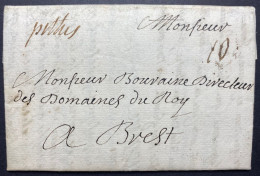 pithis
Monsieur
10
Monsieur Bouraine Directeur
des Domaines du Roy
A Brest